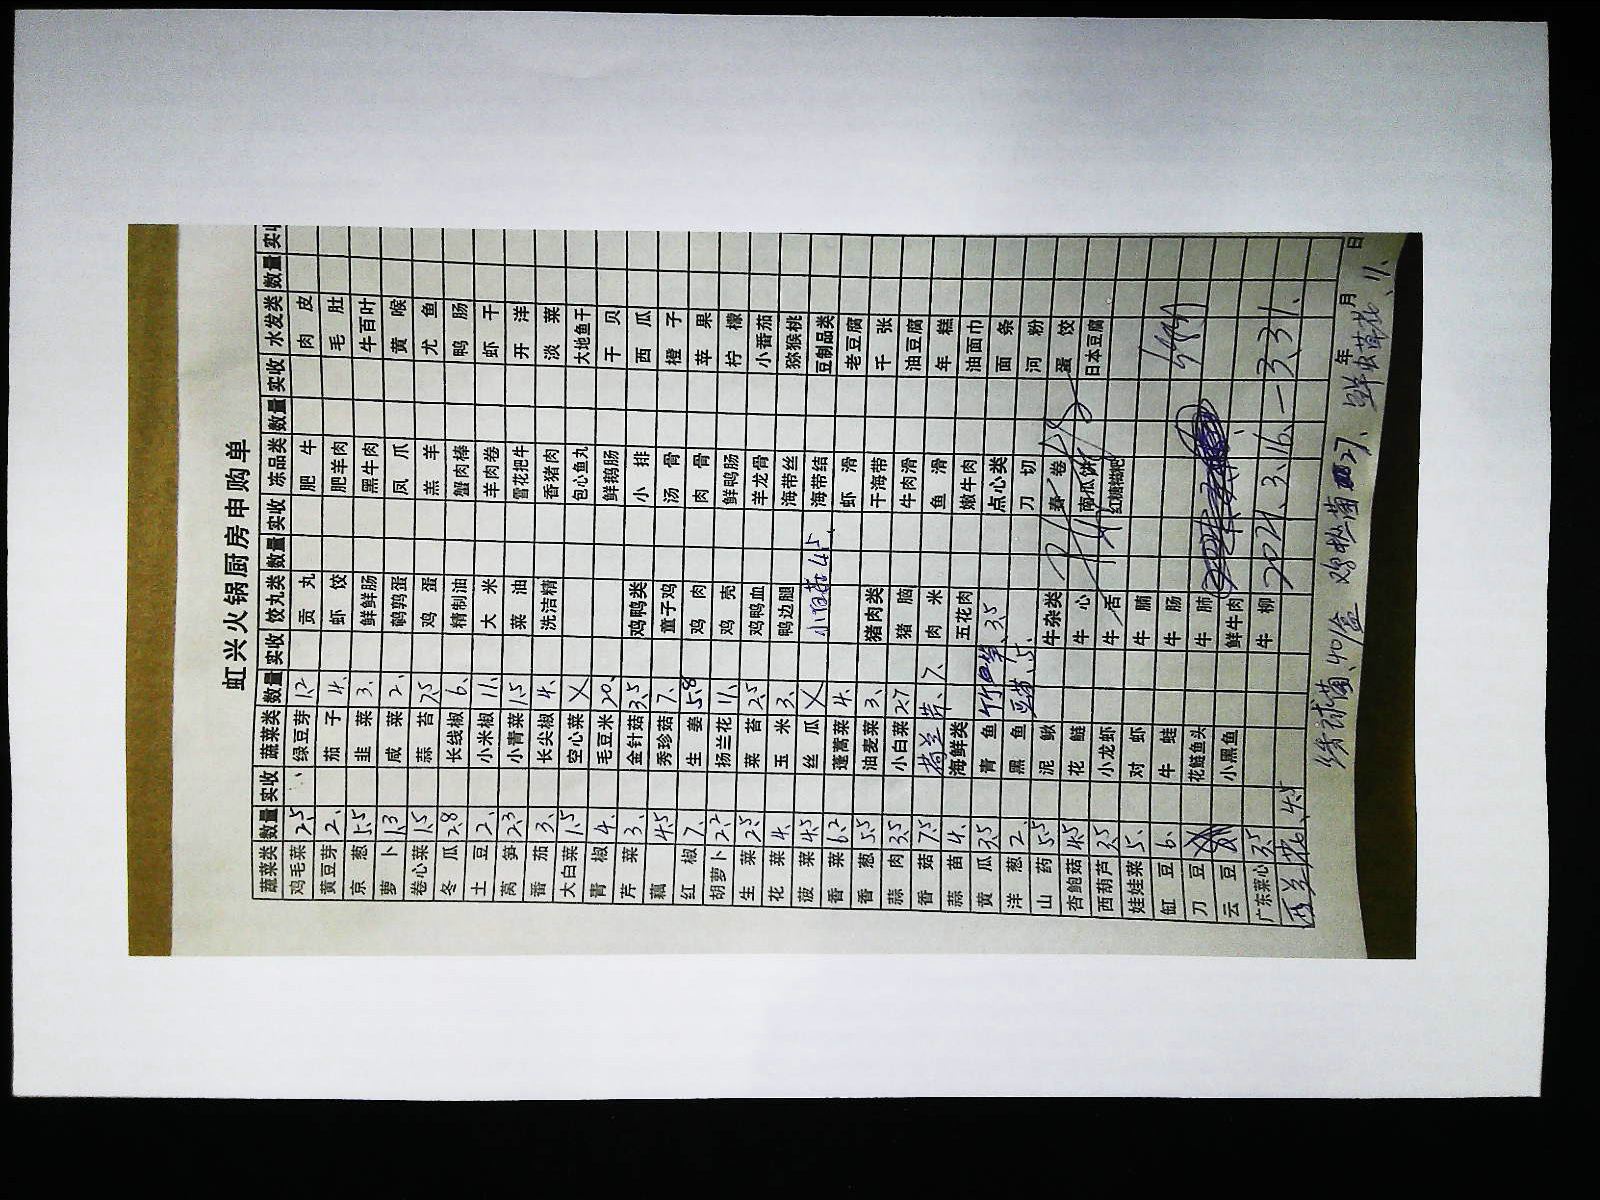 虹兴火锅厨房申购单
蔬菜类 数量 实收 蔬菜类 数量 实收 饺丸类 数量 实收 冻品类 数量 实收 水发类 数量 实收
鸡毛菜 2.5 绿豆芽 1.2 贡丸 肥牛 肉皮
黄豆芽 2、 茄子 4、 虾饺 肥羊肉 毛肚
京葱 1.5 韭菜 3、 鲜鲜肠 黑牛肉 牛百叶
萝卜 1.3 咸菜 2、 鹌鹑蛋 凤爪 黄喉
卷心菜 1.5 蒜苔 7.5 鸡蛋 羔羊 尤鱼
冬瓜 2.8 长线椒 6、 精制油 蟹肉棒 鸭肠
土豆 2、 小米椒 11、 大米 羊肉卷 虾干
莴笋 2.3 小青菜 1.5 菜油 雪花把牛 开洋
番茄 3、 长尖椒 4、 洗洁精 香猪肉 淡菜
大白菜 1.5 空心菜 X 包心鱼丸 大地鱼干
青椒 4、 毛豆米 20、 鲜鹅肠 干贝
芹菜 3、 金针菇 3.5 鸡鸭类 小排 西瓜
藕 4.5 秀珍菇 7、 童子鸡 汤骨 橙子
红椒 7、 生姜 5.8 鸡肉 肉骨 苹果
胡萝卜 2.2 扬兰花 11、 鸡壳 鲜鸭肠 柠檬
生菜 2.5 菜苔 2.5 鸡鸭血 羊龙骨 小番茄
花菜 4、 玉米 3、 鸭边腿 海带丝 猕猴桃
菠菜 4.5 丝瓜 X 小白菇 4.5、 海带结 豆制品类
香菜 6.2 蓬蒿菜 4、 虾滑 老豆腐
香葱 5.5 油麦菜 3、 猪肉类 干海带 千张
蒜肉 3.5 小白菜 2.7 猪脑 牛肉滑 油豆腐
香菇 7.5 7、 肉米 鱼滑 年糕
蒜苗 4、 海鲜类 五花肉 嫩牛肉 油面巾
黄瓜 3.5 青鱼 3.5 点心类 面条
洋葱 2、 黑鱼 5、 刀切 河粉
山药 5.5 泥鳅 牛杂类 春卷 蛋饺
杏鲍菇 4.5 花鲢 牛心 南瓜饼 日本豆腐
西葫芦 3.5 小龙虾 牛舌 红糖糍粑
娃娃菜 5、 对虾 牛腩
缸豆 6、 牛蛙 牛肠
刀豆 X 花鲢鱼头 牛肺
云豆 X 小黑鱼 鲜牛肉
广东菜心 3.5 牛柳 2021.3.16.—3.31.
西兰花 4.5
年 月 日
40/盒 鸡枞菌 27、 鲜虫草花 11、